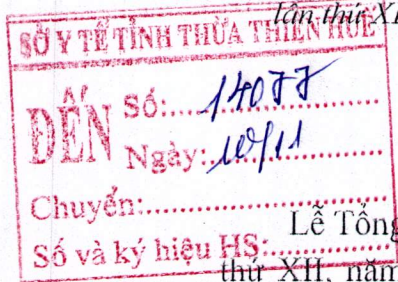 lần thứ XI
SỞ Y TẾ TỈNH THỪA THIÊN HUẾ
ĐẾN
Số:.....14077
Ngày:.....10/11
Chuyển:
Lễ Tổng
Số và ký hiệu HS:
thứ XII, năm